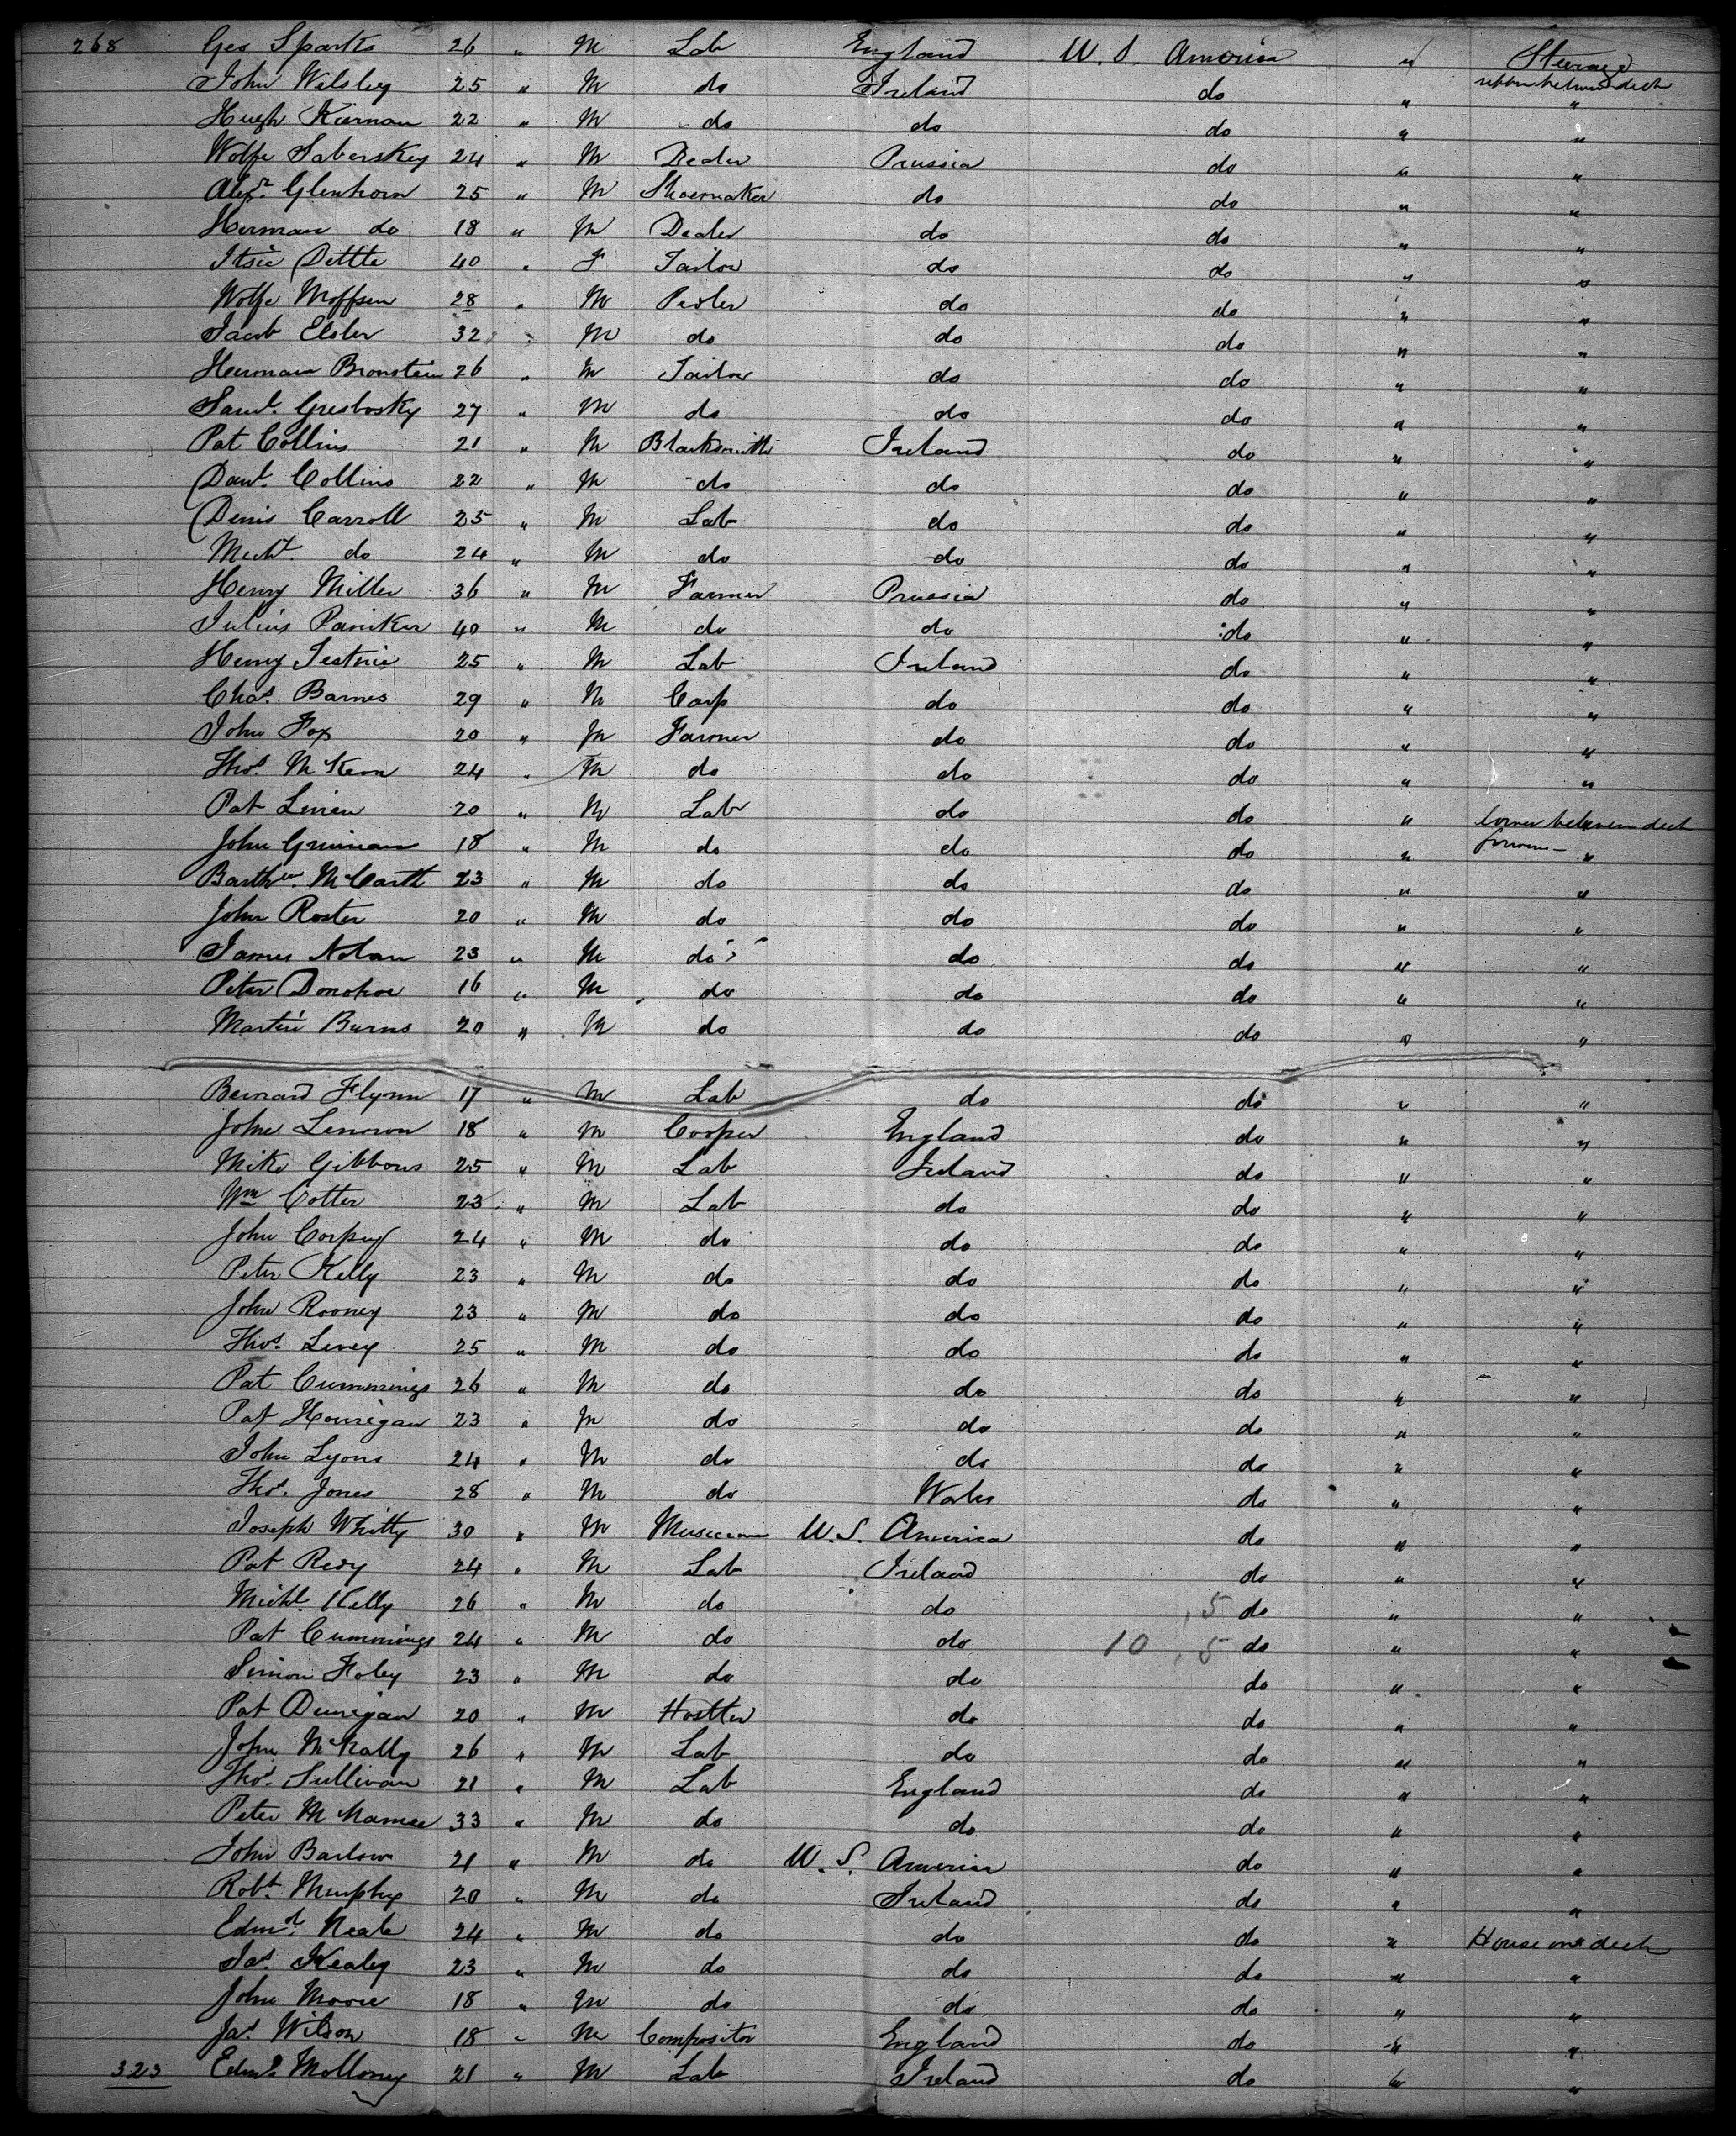 268 Geo Sparks 26 " M Lab England U. S. America " Steerage
John Welsley 25 " M do Ireland do " upper between deck "
Hugh Kiernan 22 " M do do do " "
Wolfe Saberskey 24 " M Dealer Prussia do " "
Alexr Glenhorn 25 " M Shoemaker do do " "
Herman do 18 " M Dealer do do " "
Itsic Dettla 40 " F Tailor do do " "
Wolfe Moffsen 28 " M Pedler do do " "
Jacob Elsler 32 " M do do do " "
Herman Bronstein 26 " M Tailor do do " "
Saml. Gresbosky 27 " M do do do " "
Pat Collins 21 " M Blacksmith Ireland do " "
Danl. Collins 22 " M do do do " "
Denis Carroll 25 " M Lab do do " "
Michl. do 24 " M do do do " "
Henry Miller 36 " M Farmer Prussia do " "
Julius Paniker 40 " M do do do " "
Henry 25 " M Lab Ireland do " "
Chas. Barnes 29 " M Carp do do " "
John Fox 20 " M Farmer do do " "
Thos. McKeon 24 " M do do do " "
Pat 20 " M Lab do do " lower between deck
John 18 " M do do do " "
Barthw. McCartt 23 " M do do do " "
John Roster 20 " M do do do " "
James Nolan 23 " M do do do " "
Peter Donohoe 16 " M do do do " "
Martin Burns 20 " M do do do " "
Bernard Flynn 17 " M Lab do do " "
John Lennon 18 " M Cooper England do " "
Mike Gibbons 25 " M Lab Ireland do " "
Wm Cotter 23 " M Lab do do " "
John Corpuy 24 " M do do do " "
Peter Kelly 23 " M do do do " "
John Rooney 23 " M do do do " "
Thos. Livey 25 " M do do do " "
Pat Cummings 26 " M do do do " "
Pat Hourigan 23 " M do do do " "
John Lyons 24 " M do do do " "
Thos. Jones 28 " M do Wales do " "
Joseph Whitty 30 " M Musician U. S. America do " "
Pat Redy 24 " M Lab Ireland do " "
Michl. Kelly 26 " M do do 5 do " "
Pat Cummings 24 " M do do 10 5 do " "
Simon Foley 23 " M do do do " "
Pat Dunigan 20 " M Hostler do do " "
John McNally 26 " M Lab do do " "
Thos. Sullivan 21 " M Lab England do " "
Peter McNamee 33 " M do do do " "
John Barlow 21 " M do U. S. America do " "
Robt. Murphy 20 " M do Ireland do " "
Edmd. Neale 24 " M do do do " House on deck
Jas. Kealey 23 " M do do do " "
John Moore 18 " M do do do " "
Jas. Wilson 18 " M Compositor England do " "
323 Edmd. Molloney 21 " M Lab Ireland do " "